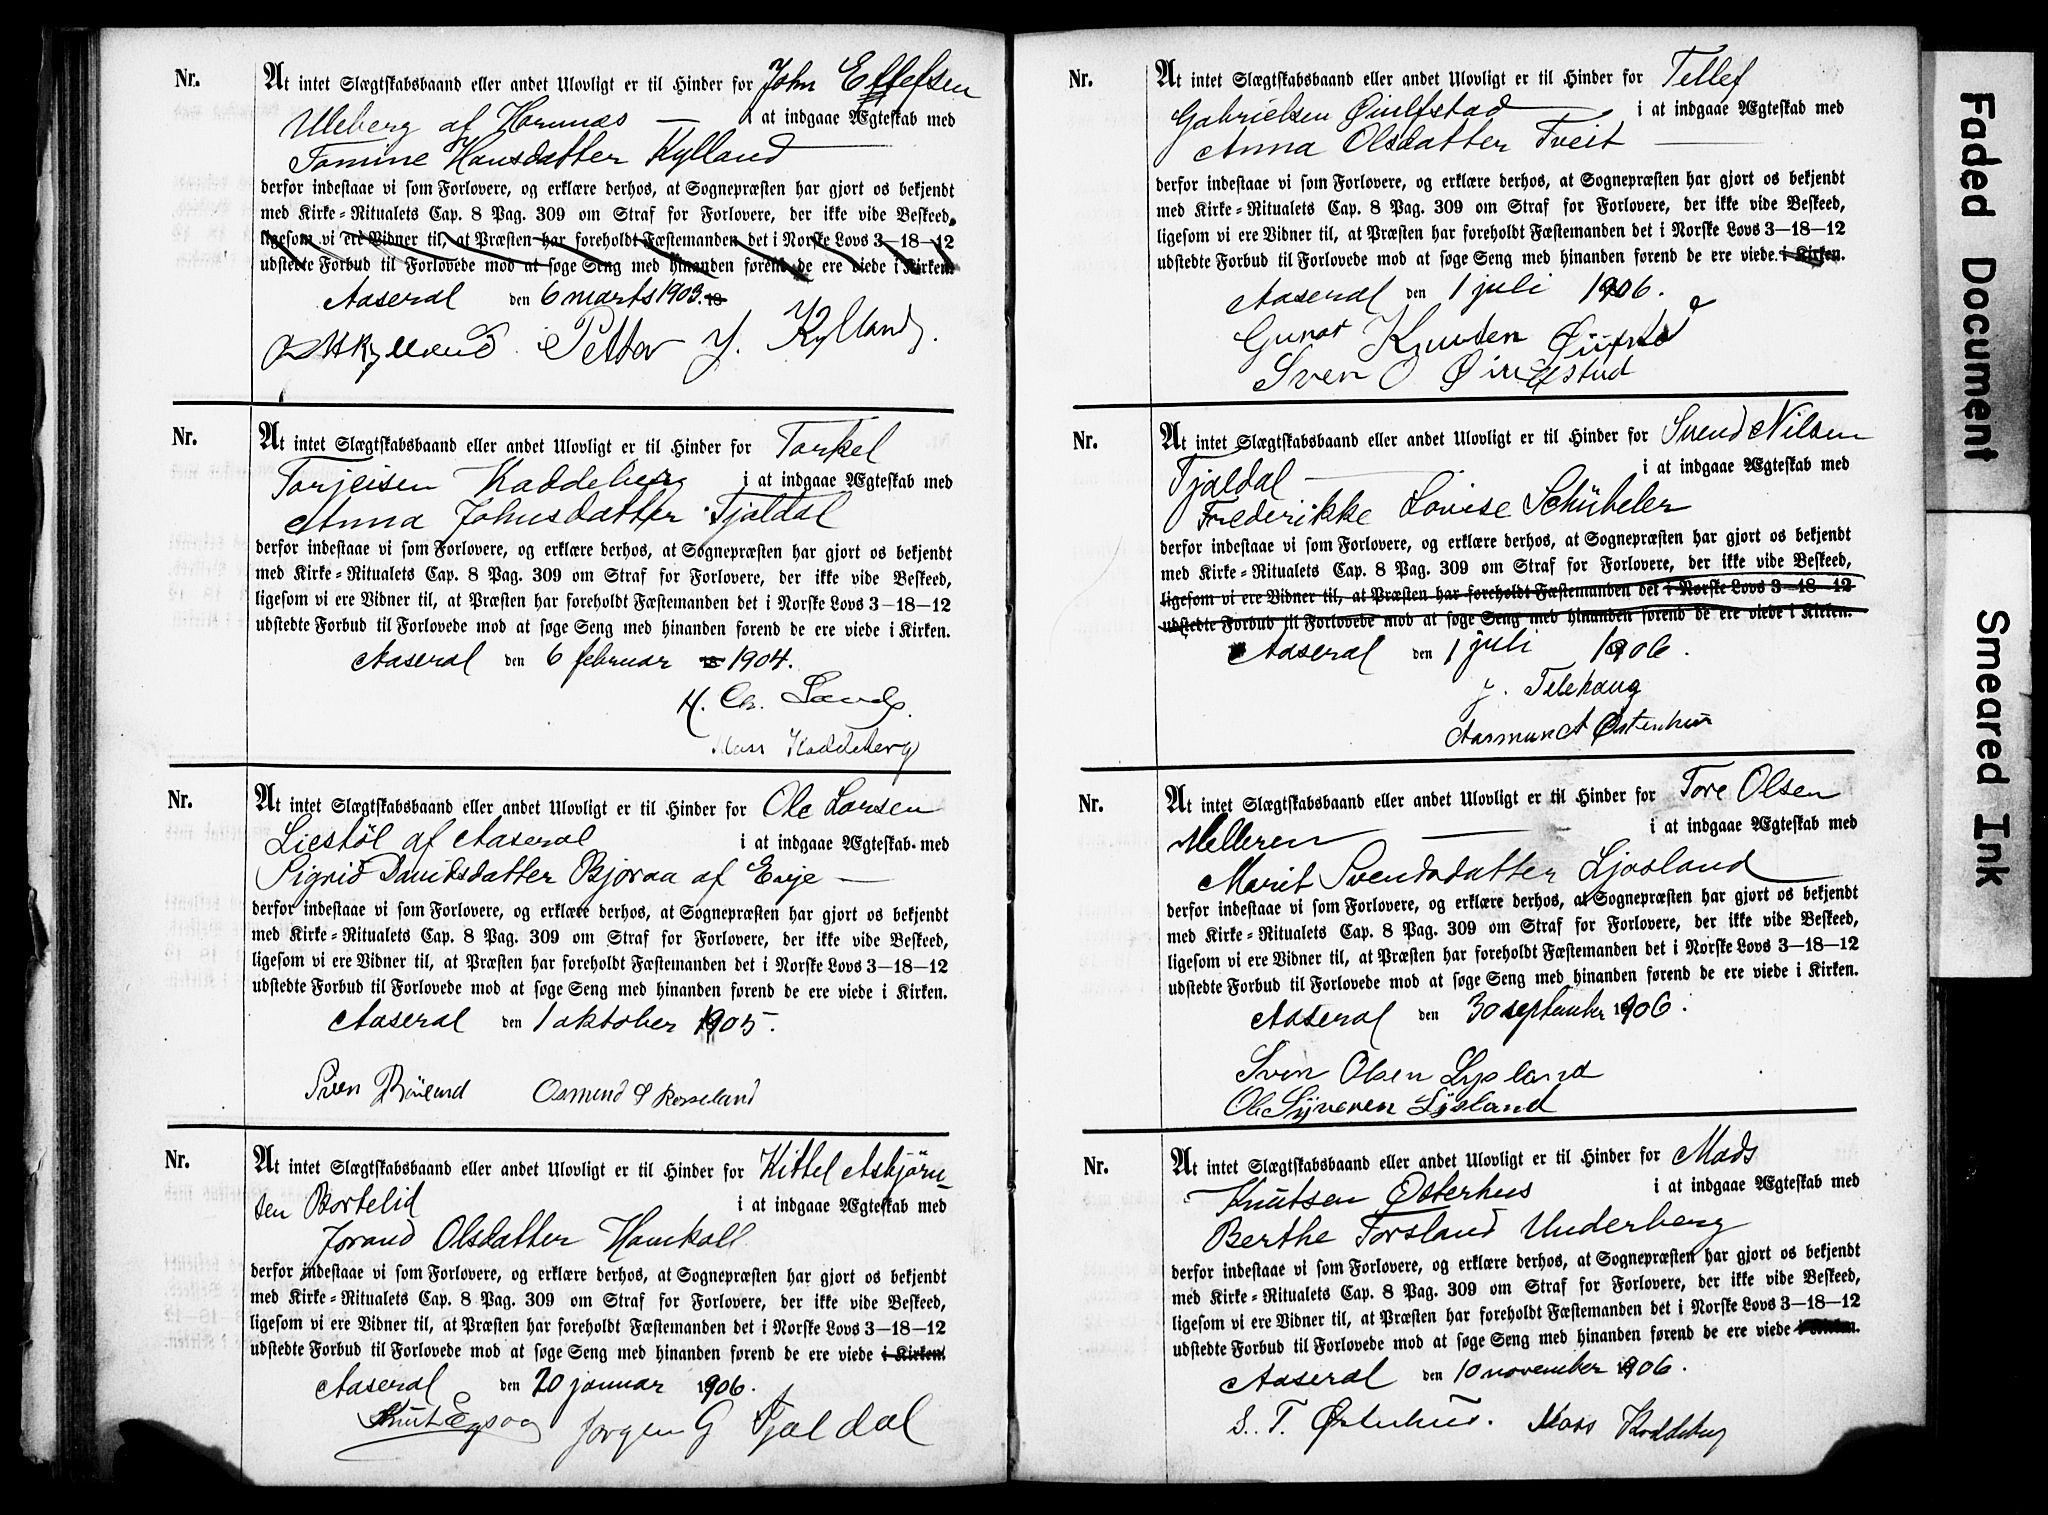 Nr. At intet Slægtskabsbaand eller andet Ulovligt er til Hinder for John Ellefsen
Uleberg af Hornnæs — i at indgaae Ægteskab med
Tomine Hansdatter Kylland
derfor indestaae vi som Forlovere, og erklære derhos, at Sognepræsten har gjort os bekjendt
med Kirke-Ritualets Cap. 8 Pag. 309 om Straf for Forlovere, der ikke vide Beskeed.
ligesom vi ere Vidner til, at Præsten har foreholdt Fæstemanden det i Norske Lovs 3—18—12
udstedte Forbud til Forlovede mod at søge Seng med hinanden førend de ere viede i Kirken.
Aaseral den 6 marts 1903. 18
Kylland. Petter J. Kylland.
Nr. At intet Slægtskabsbaand eller andet Ulovligt er til Hinder for Torkel
Torjeisen Kaddeberg i at indgaae Ægteskab med
Anna Johnsdatter Fjaldal
derfor indestaae vi som Forlovere, og erklære derhos, at Sognepræsten har gjort os bekjendt
med Kirke-Ritualets Cap. 8 Pag. 309 om Straf for Forlovere, der ikke vide Beskeed,
ligesom vi ere Vidner til, at Præsten har foreholdt Fæstemanden det i Norske Lovs 3—18—12
udstedte Forbud til Forlovede mod at søge Seng med hinanden førend de ere viede i Kirken.
Aaseral den 6 februar 18 1904.
H. Chr. Sands.
Mass Kaddeberg
Nr. At intet Slægtskabsbaand eller andet Ulovligt er til Hinder for Ole Larsen
Liestøl af Aaseral i at indgaae Ægteskab med
Sigrid Davidsdatter Bjoraa af Evje —
derfor indestaae vi som Forlovere, og erklære derhos, at Sognepræsten har gjort os bekjendt
med Kirke-Ritualets Cap. 8 Pag. 309 om Straf for Forlovere, der ikke vide Beskeed,
ligesom vi ere Vidner til, at Præsten har foreholdt Fæstemanden det i Norske Lovs 3—18—12
udstedte Forbud til Forlovede mod at søge Seng med hinanden førend de ere viede i Kirken.
Aaseral den 1 oktober 1905.
Sven Røiland Osmund S Rosseland
Nr. At intet Slægtskabsbaand eller andet Ulovligt er til Hinder for Kittel Asbjørn-
sen Bortelid i at indgaae Ægteskab med
Jorand Olsdatter Homkoll
derfor indestaae vi som Forlovere, og erklære derhos, at Sognepræsten har gjort os bekjendt
med Kirke-Ritualets Cap. 8 Pag. 309 om Straf for Forlovere, der ikke vide Beskeed,
ligesom vi ere Vidner til, at Præsten har foreholdt Fæstemanden det i Norske Lovs 3—18—12
udstedte Forbud til Forlovede mod at søge Seng med hinanden førend de ere viede i Kirken.
Aaseral den 20 januar 1906.
Knut Egsaa Jorgen G Fjaldal
Nr. At intet Slægtskabsbaand eller andet Ulovligt er til Hinder for Tellef
Gabrielsen Øiulfstad i at indgaae Ægteskab med
Anna Olsdatter Tveit —
derfor indestaae vi som Forlovere, og erklære derhos, at Sognepræsten har gjort os bekjendt
med Kirke-Ritualets Cap. 8 Pag. 309 om Straf for Forlovere, der ikke vide Beskeed,
ligesom vi ere Vidner til, at Præsten har foreholdt Fæstemanden det i Norske Lovs 3—18—12
udstedte Forbud til Forlovede mod at søge Seng med hinanden førend de ere viede. i Kirken.
Aaseral den 1 juli 1906.
Gunar Knutsen
Sven O Øiulfstad
Nr. At intet Slægtskabsbaand eller andet Ulovligt er til Hinder for Svend Nilsen
Fjaldal — i at indgaae Ægteskab med
Frederikke Lovise Schübeler
derfor indestaae vi som Forlovere, og erklære derhos, at Sognepræsten har gjort os bekjendt
med Kirke-Ritualets Cap. 8 Pag. 309 om Straf for Forlovere, der ikke vide Beskeed,
ligesom vi ere Vidner til, at Præsten har foreholdt Fæstemanden det i Norske Lovs 3—18—12
udstedte Forbud til Forlovede mod at søge Seng med hinanden førend de ere viede i Kirken.
Aaseral den 1 juli 1906.
J. Telehaug
Aasmund A Østerhus
Nr. At intet Slægtskabsbaand eller andet Ulovligt er til Hinder for Tore Olsen
Melleren — i at indgaae Ægteskab med
Marit Svendsdatter Ljosland
derfor indestaae vi som Forlovere, og erklære derhos, at Sognepræsten har gjort os bekjendt
med Kirke-Ritualets Cap. 8 Pag. 309 om Straf for Forlovere, der ikke vide Beskeed,
ligesom vi ere Vidner til, at Præsten har foreholdt Fæstemanden det i Norske Lovs 3—18—12
udstedte Forbud til Forlovede mod at søge Seng med hinanden førend de ere viede i Kirken.
Aaseral den 30 september 1906.
Sven Olsen Lysland
Ole Syversen Lysland
Nr. At intet Slægtskabsbaand eller andet Ulovligt er til Hinder for Mads
Knutsen Østerhus i at indgaae Ægteskab med
Berthe Torsland Underberg
derfor indestaae vi som Forlovere, og erklære derhos, at Sognepræsten har gjort os bekjendt
med Kirke-Ritualets Cap. 8 Pag. 309 om Straf for Forlovere, der ikke vide Beskeed,
ligesom vi ere Vidner til, at Præsten har foreholdt Fæstemanden det i Norske Lovs 3—18—12
udstedte Forbud til Forlovede mod at søge Seng med hinanden førend de ere viede i Kirken.
Aaseral den 10 november 1906.
S. T. Østerhus. Mass Kaddeberg
Faded Document
Smeared Ink